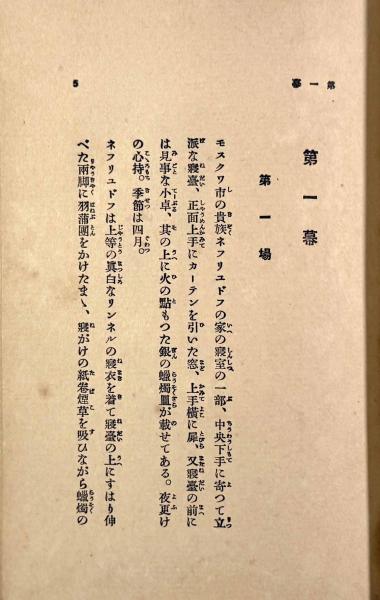 第一幕
5
第一幕
第一場
モスクワ市の貴族ネフリユドフの家の寢室の一部、中央下手に寄つて立
派な寢臺、正面上手にカーテンを引いた窓、上手横に扉、又寢臺の前に
は見事な小卓、其の上に火の點もつた銀の蠟燭皿が載せてある。夜更け
の心持。季節は四月。
ネフリユドフは上等の眞白なリンネルの寢衣を着て寢臺の上にすはり伸
べた兩脚に羽蒲團をかけたまゝ、寢がけの紙卷煙草を吸ひながら蠟燭の